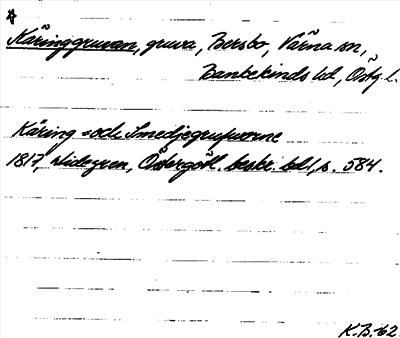 Käringgruvan, gruva, Bersbo, Värna sn,
Bankekinds hd, Östg. l.
Käring- och Smedjegrufvorne
1817, Widegren, Östergötl. beskr. bd 1, s. 584.
K.B.-62.